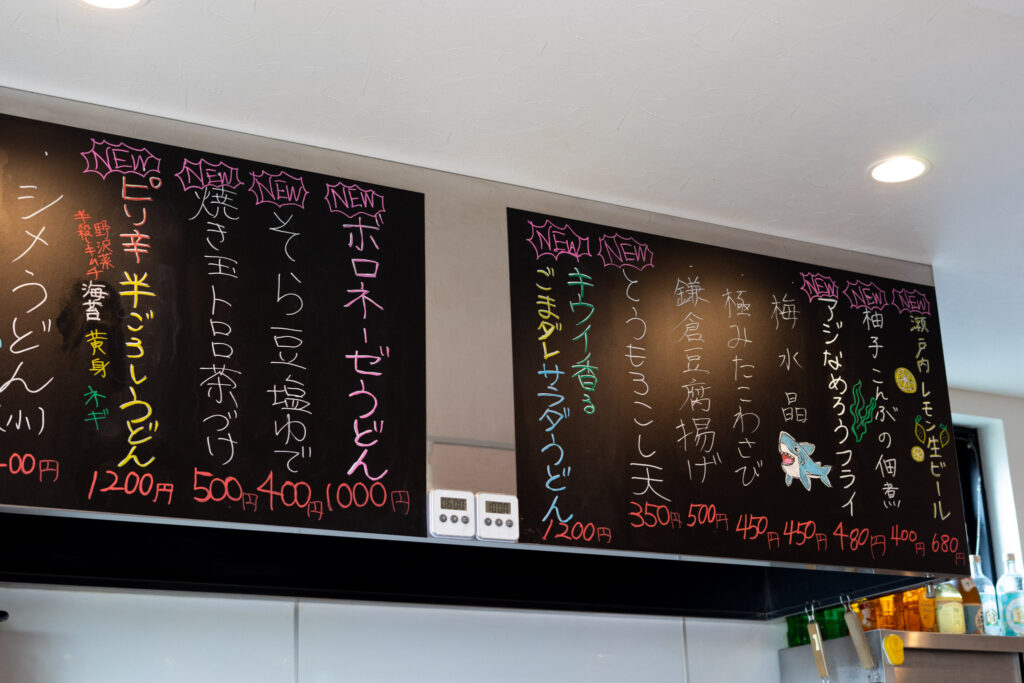 NEW
瀬戸内レモン生ビール
680円
NEW
柚子こんぶの佃煮
400円
NEW
アジなめろうフライ
480円
梅水晶
450円
極みたこわさび
450円
鎌倉豆腐揚げ
500円
NEW
とうもろこし天
350円
NEW
キウイ香る
ごまダレサラダうどん
1200円
NEW
ボロネーゼうどん
1000円
NEW
そら豆塩ゆで
400円
NEW
焼き玉トロロ茶づけ
500円
NEW
ピリ辛半ごろしうどん
野沢菜
半殺しキムチ
海苔
黄身
ネギ
1200円
シメうどん
(小)
00円